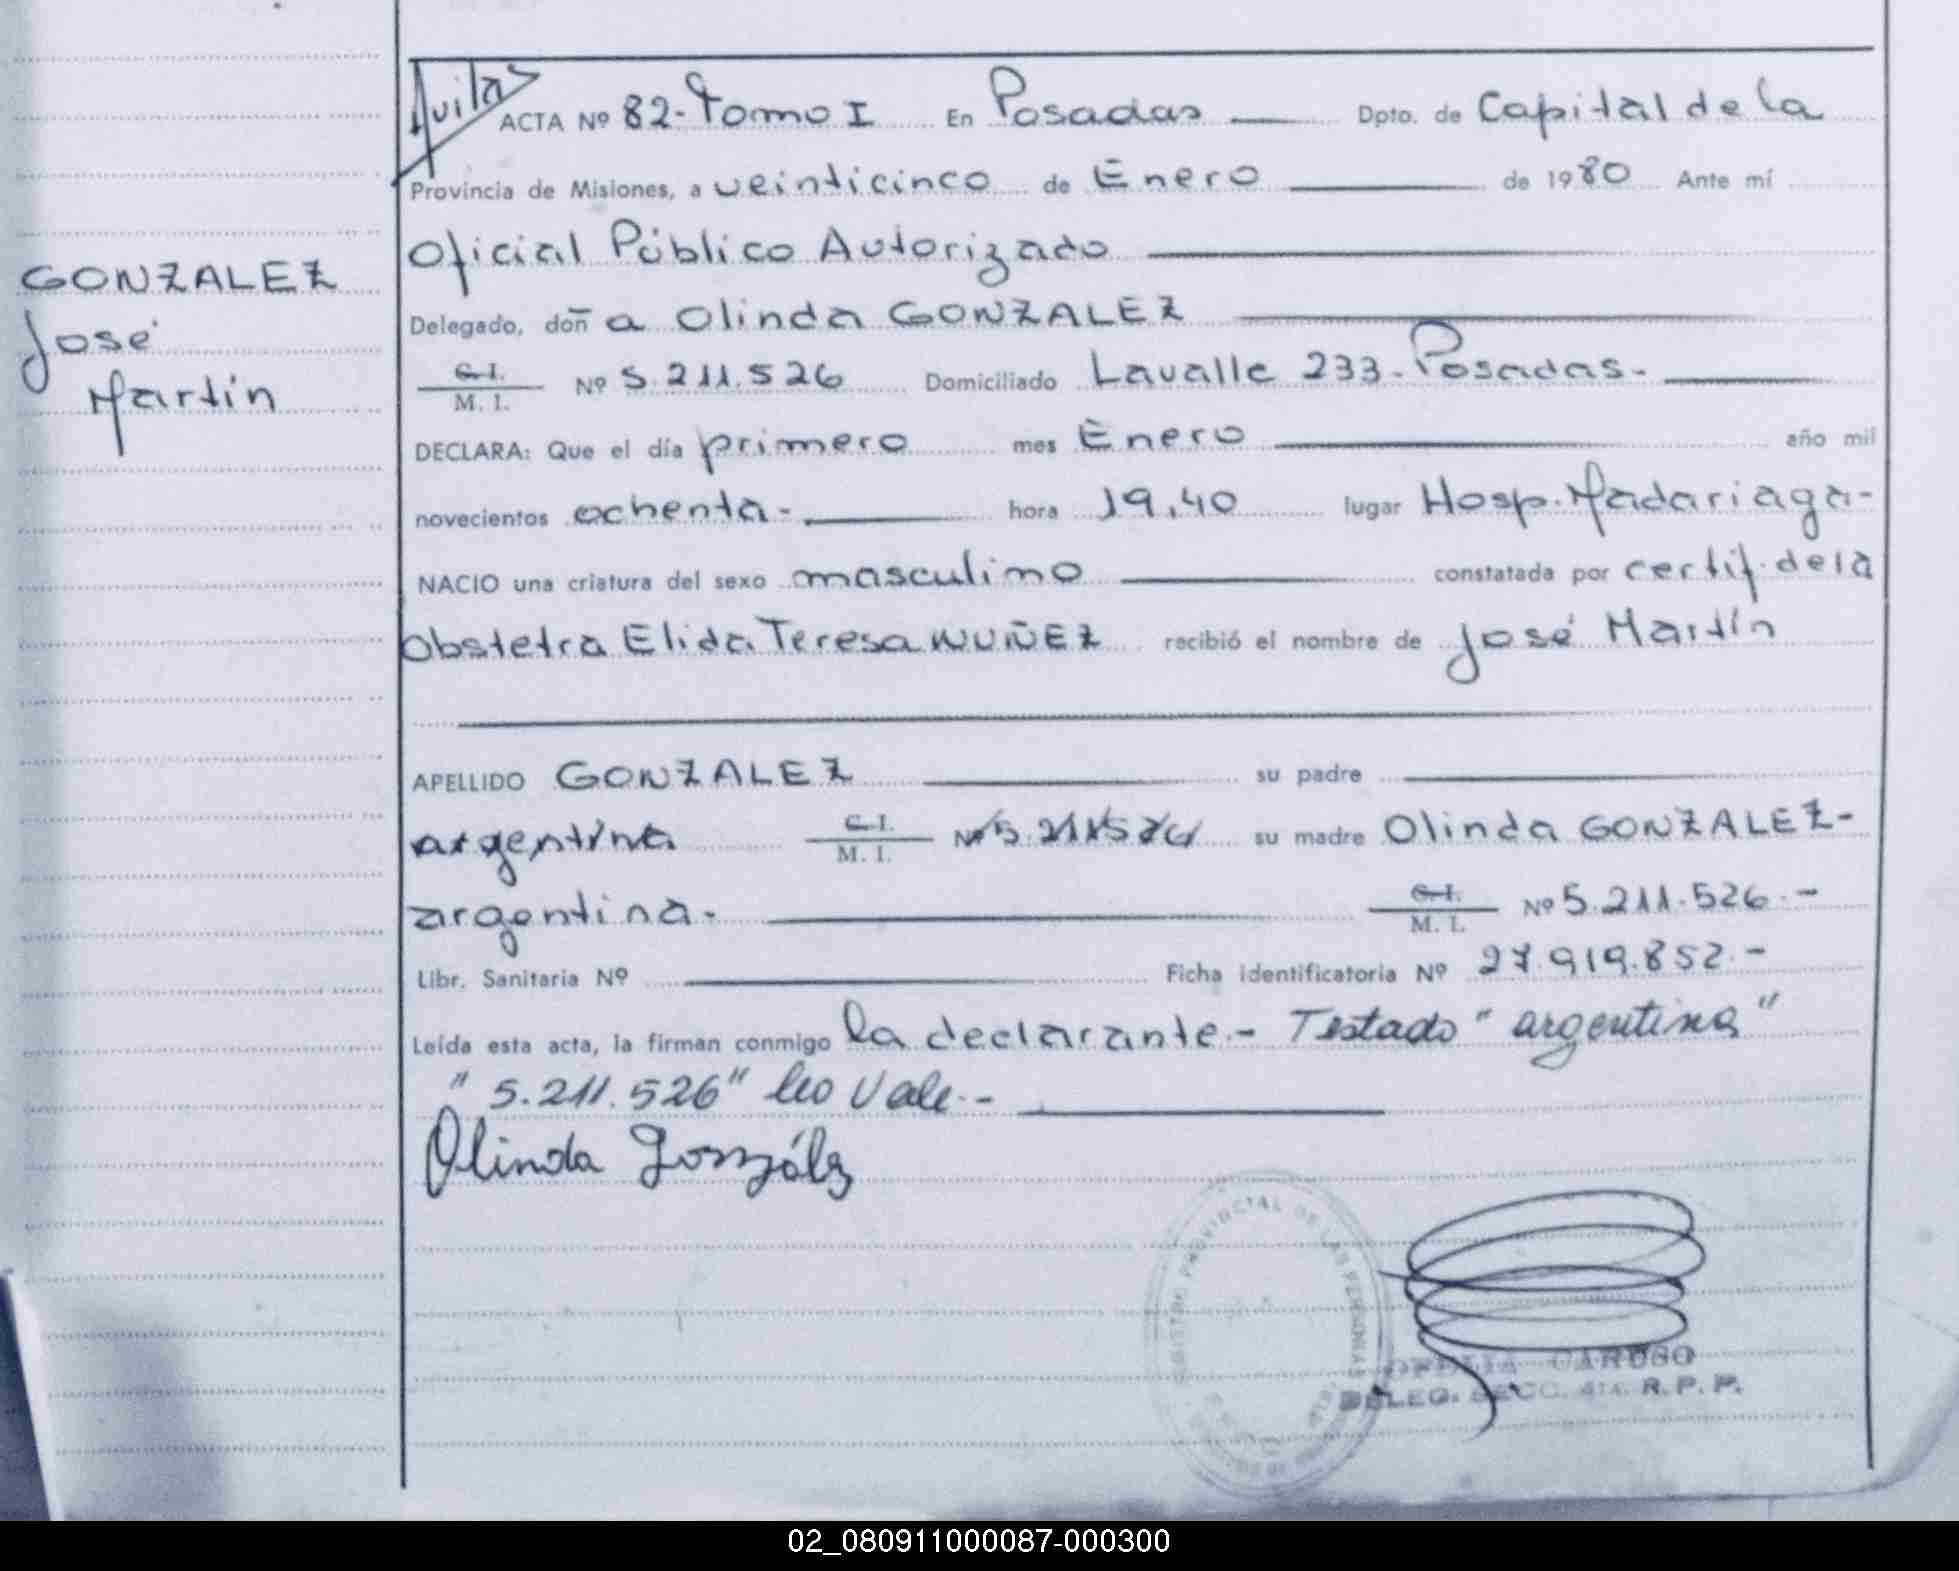 Avila
ACTA Nº 82-Tomo I En Posadas Dpto. de Capital de la
Provincia de Misiones, a veinticinco de Enero de 1980 Ante mí
Oficial Público Autorizado
Delegado, doña Olinda GONZALEZ
C.I. M. I. Nº 5.211.526 Domiciliado Lavalle 233-Posadas.-
DECLARA: Que el día primero mes Enero año mil
novecientos ochenta- hora 19,40 lugar Hosp. Madariaga-
NACIO una criatura del sexo masculino constatada por certif. de la
Obstetra Elida Teresa NUÑEZ recibió el nombre de José Martín
APELLIDO GONZALEZ su padre
argentina C.I. M. I. Nº 5.211526 su madre Olinda GONZALEZ-
argentina- C.I. M. I. Nº 5.211.526.-
Libr. Sanitaria Nº Ficha identificatoria Nº 27.919.852.-
Leída esta acta, la firman conmigo la declarante.- Testado "argentina"
"5.211.526" Vale.-
Olinda González
GONZALEZ
José
Martín
REGISTRO PROVINCIAL DE LAS PERSONAS
OFELIA CARUSO
DELEG. SECC. 4ta. R. P. P.
02_080911000087-000300